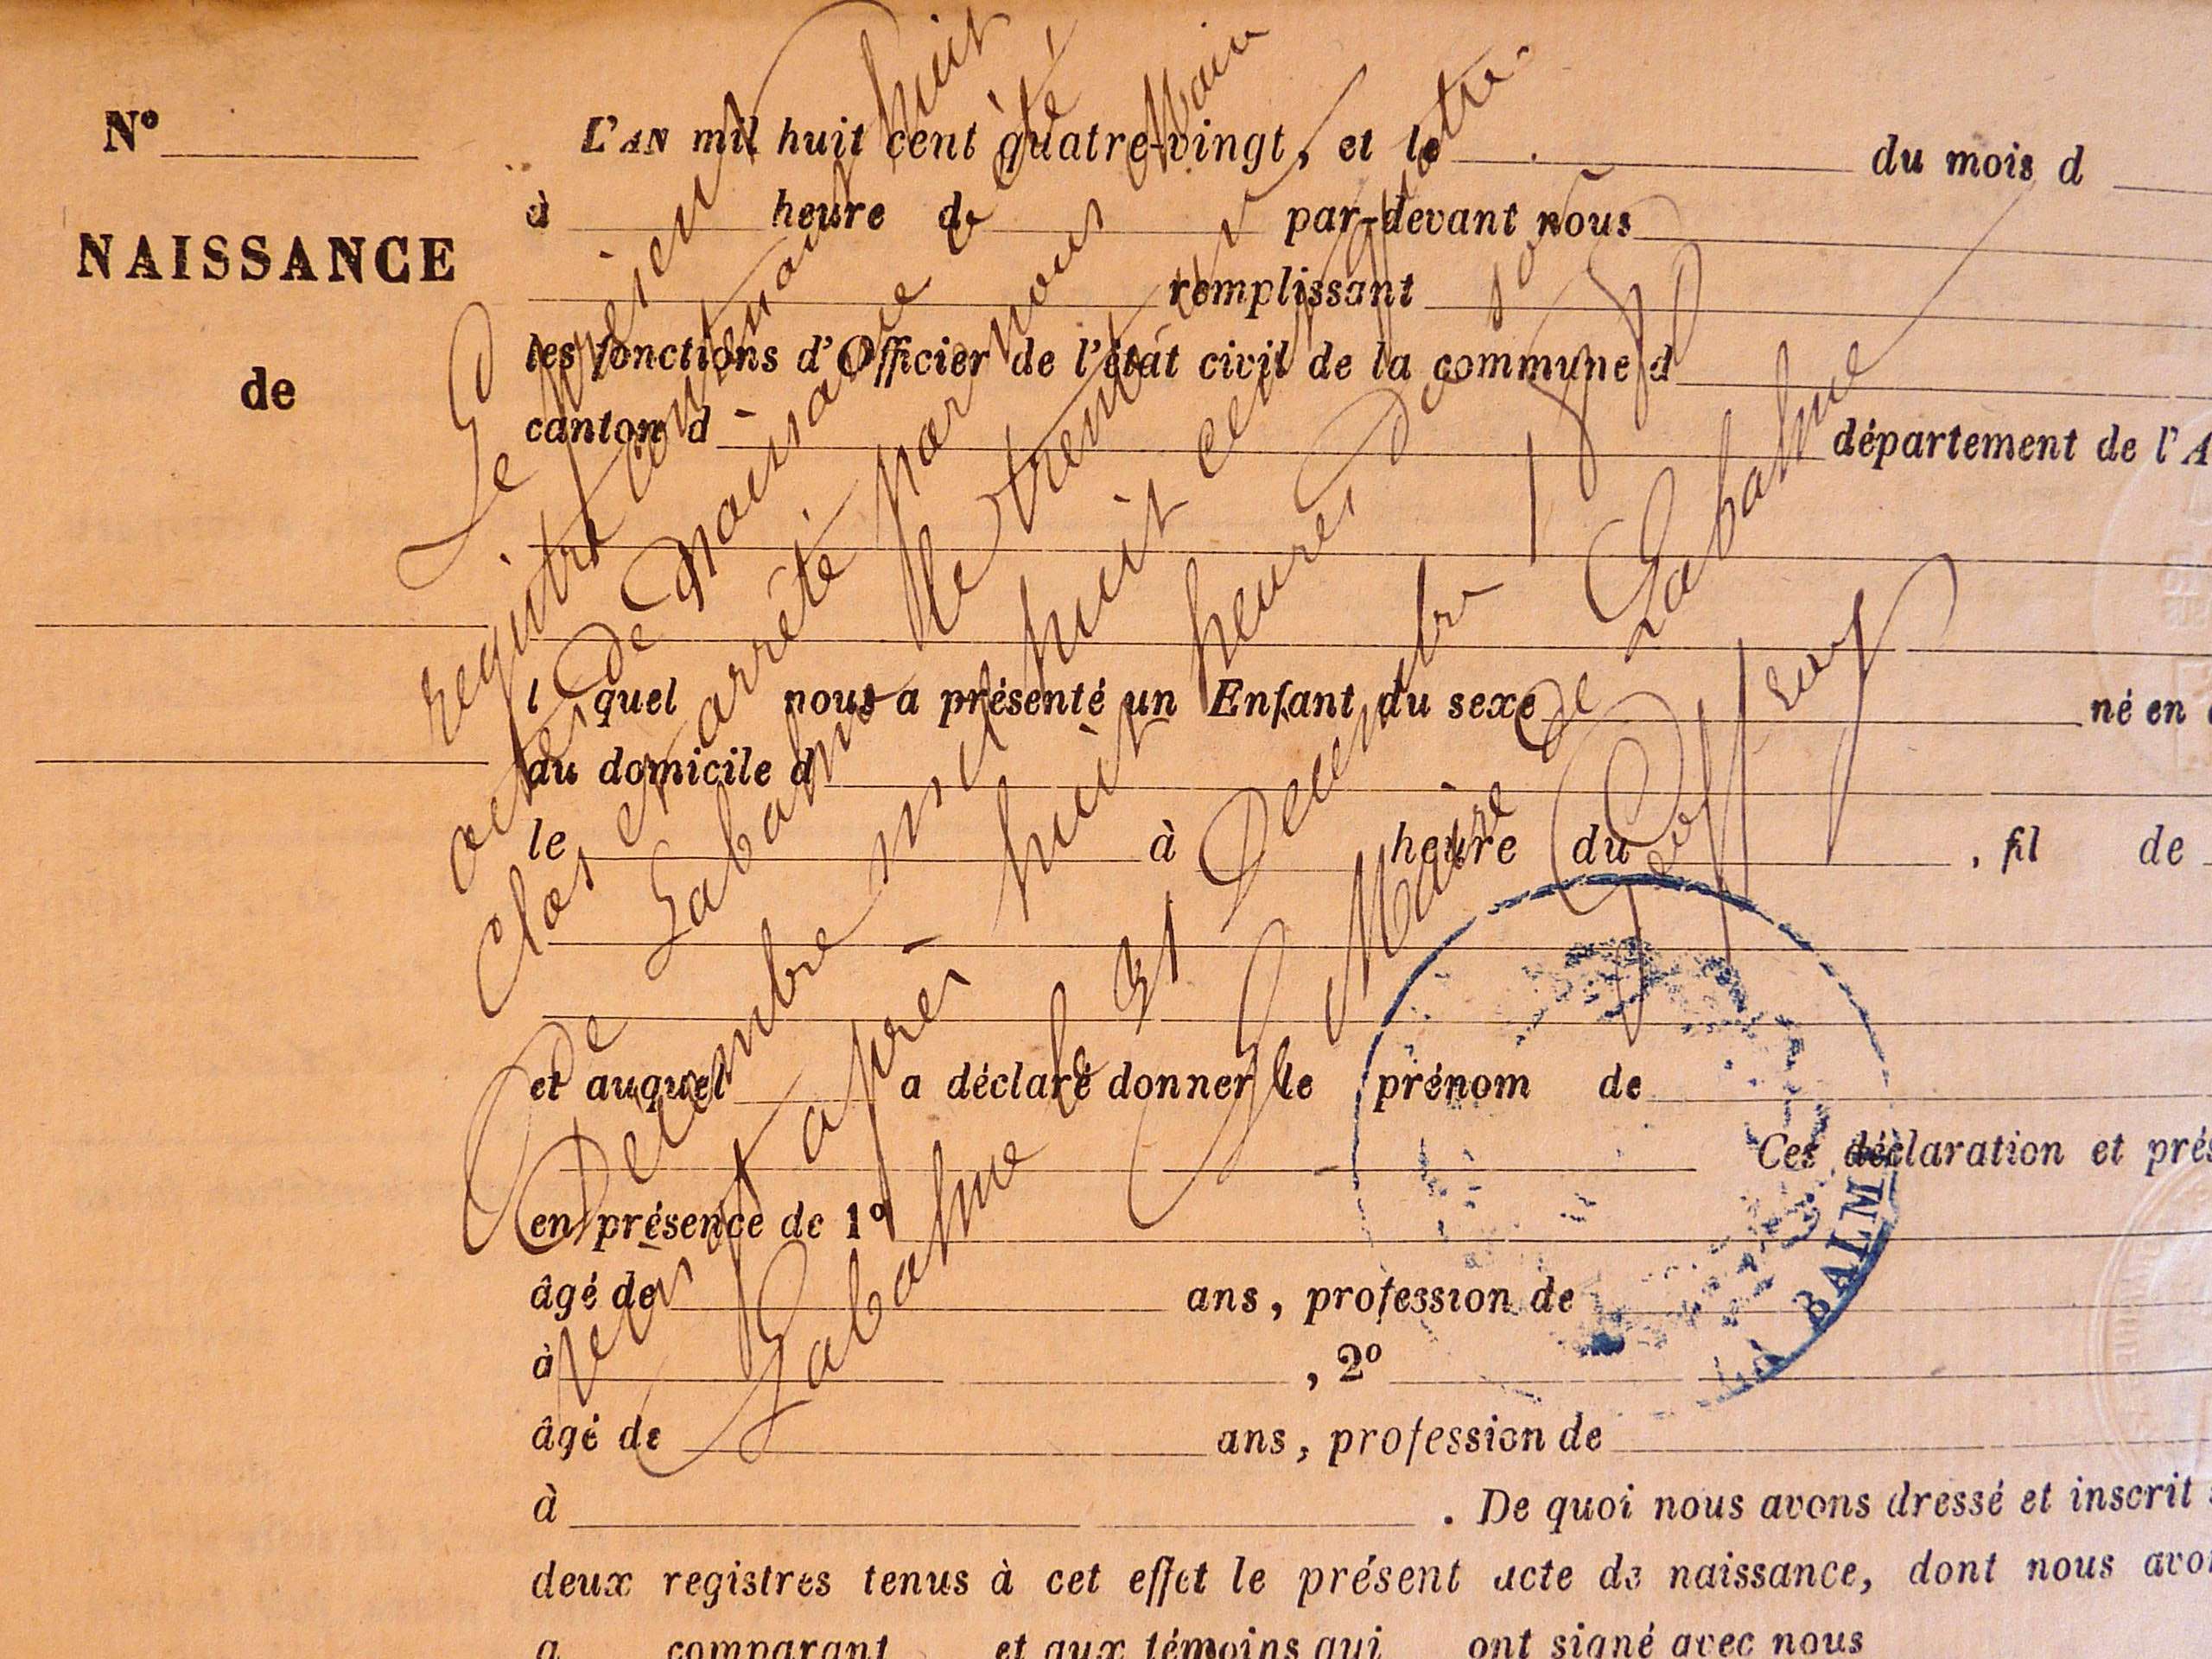 N°
NAISSANCE
de
L'AN mil huit cent quatre-vingt, et le du mois d
à heure de par-devant nous
remplissant
les fonctions d'Officier de l'état civil de la commune d
canton d département de l'A
l quel nous a présenté un Enfant du sexe né en
au domicile d
le à heure du , fil de
et auquel a déclaré donner le prénom de
Cet déclaration et prés
en présence de 1°
âgé de ans, profession de
à , 2°
âgé de ans, profession de
à . De quoi nous avons dressé et inscrit
deux registres tenus à cet effet le présent acte de naissance, dont nous avo
a comparant et aux témoins qui ont signé avec nous
Le présent
registre contenant huit
actes de naissance a été
clos et arrêté par nous Maire
de Labalme le trente un
Décembre mil huit cent quatre
vingt après huit heures du soir
Labalme le 31 Décembre 188
Le Maire de Labalme
LA BALM